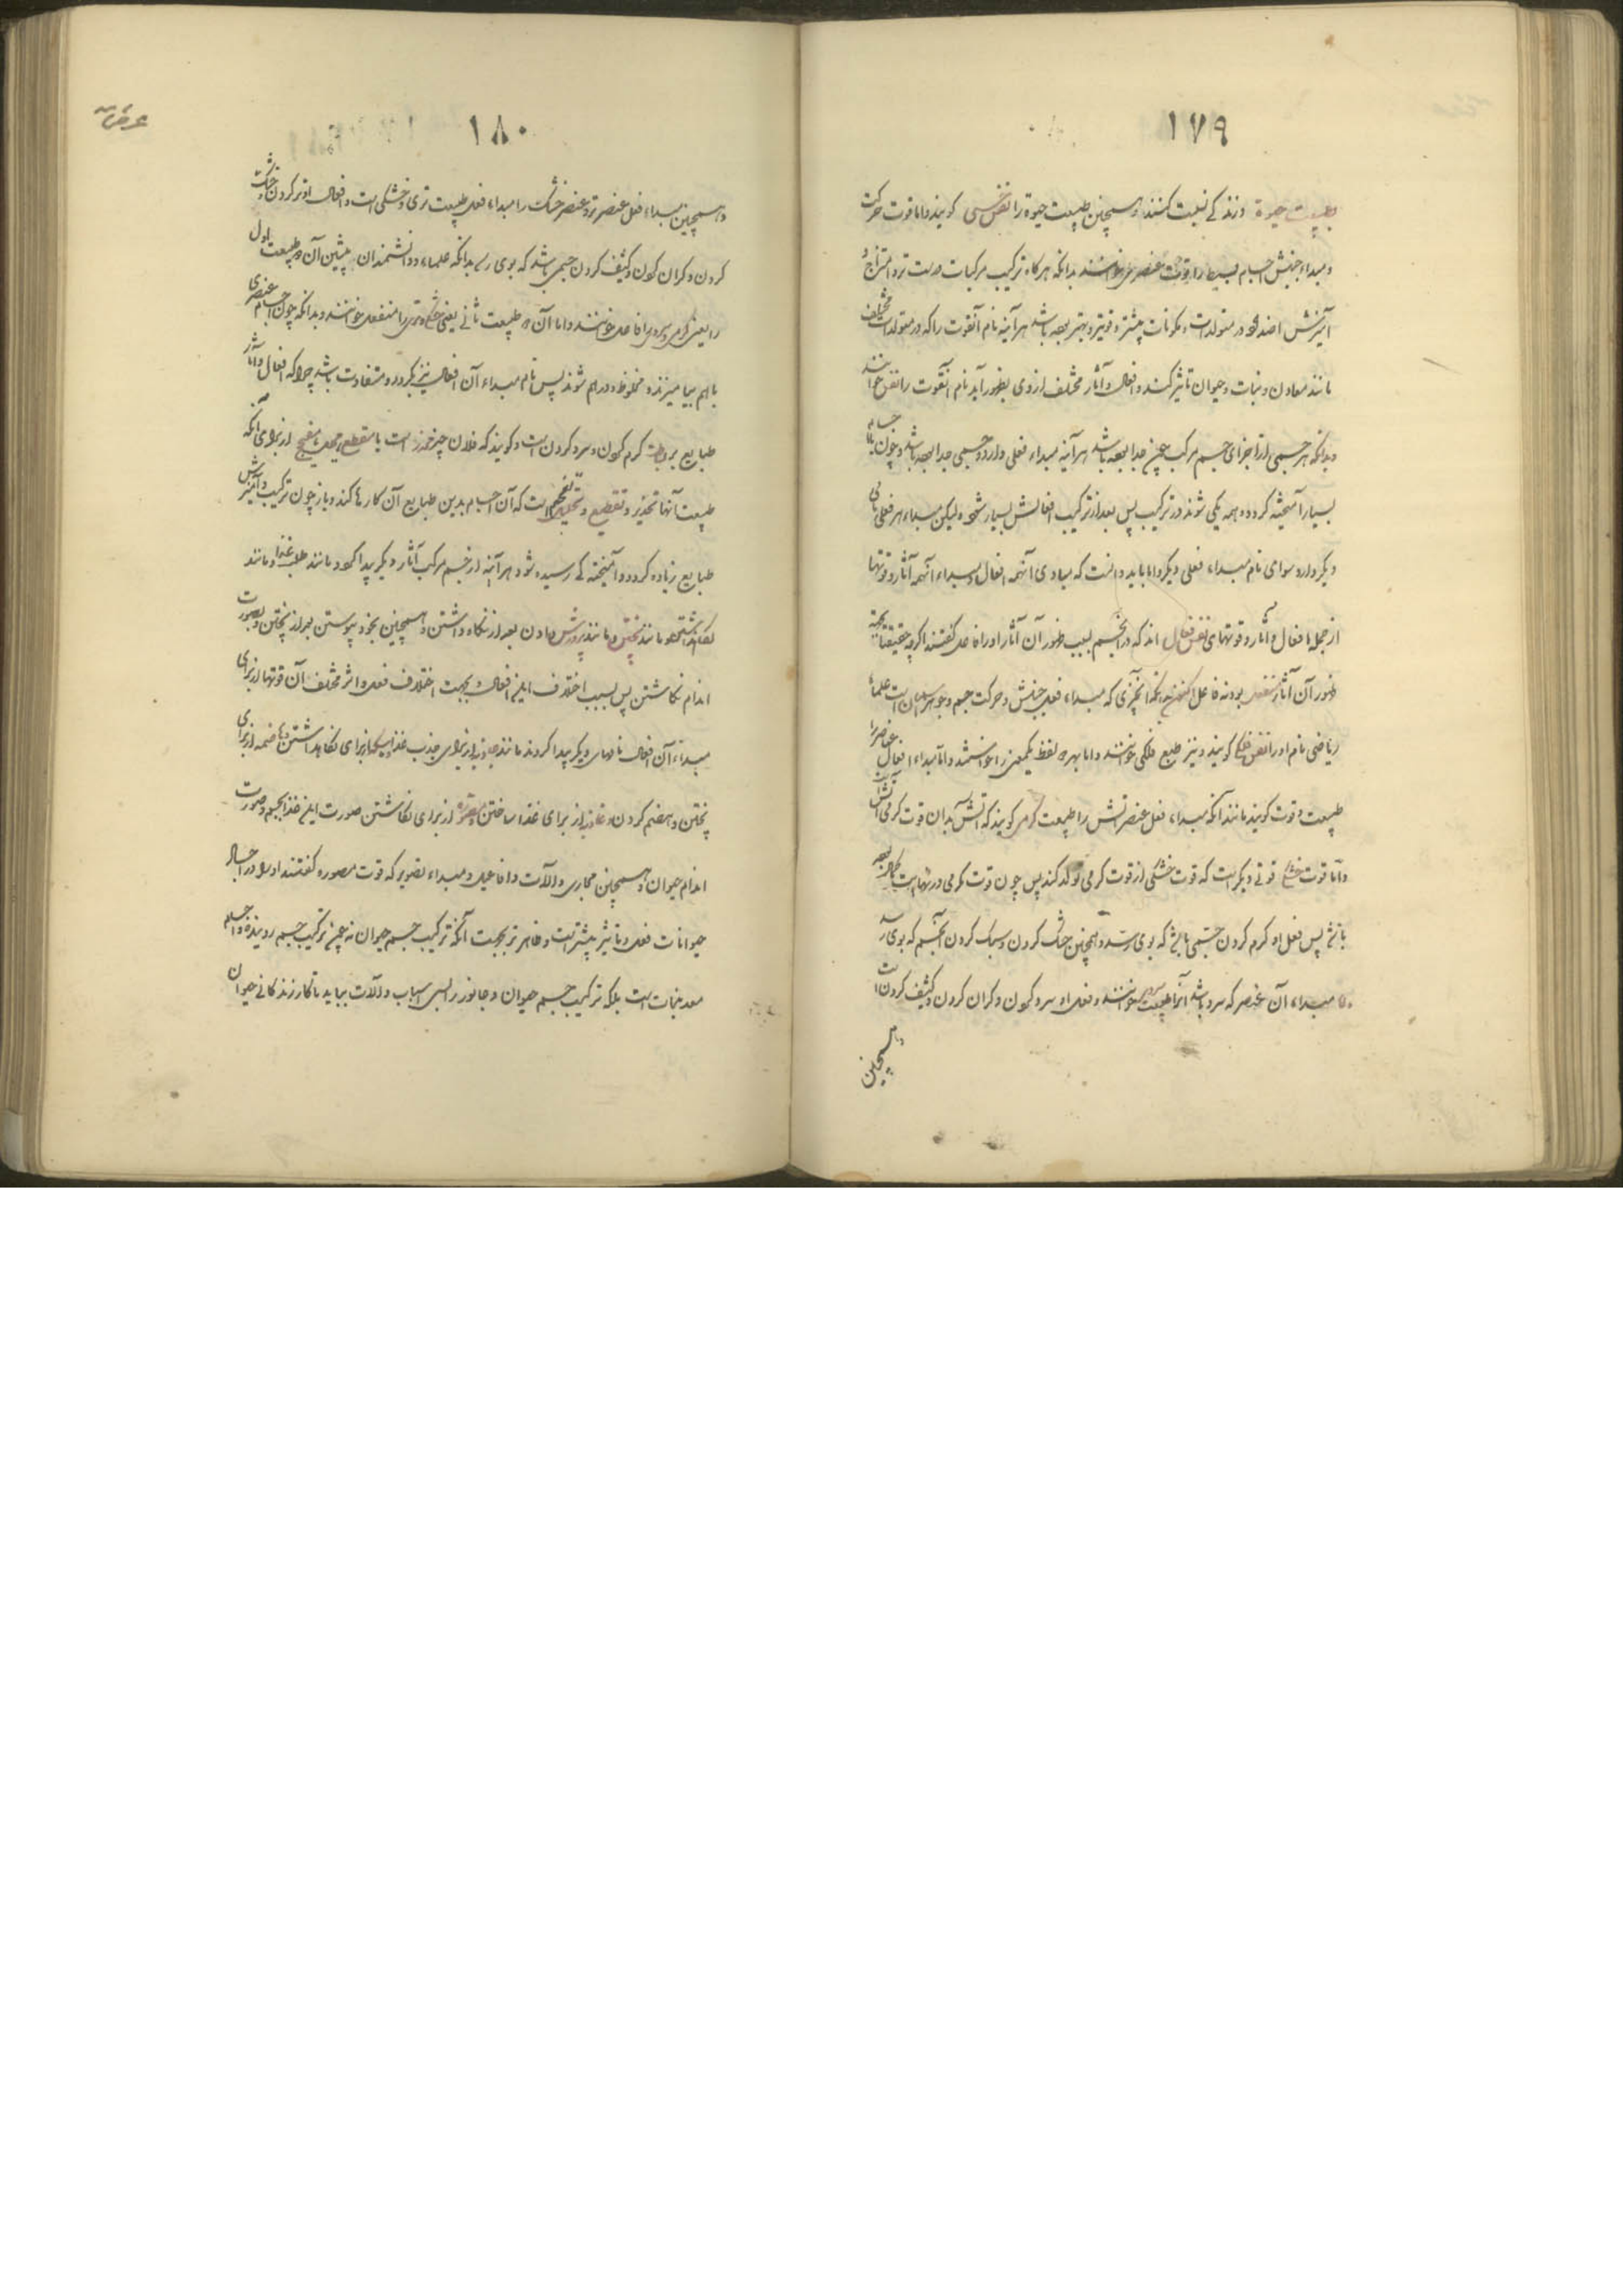 ۱۷۹
بطبیعت حیوة و زندگی نسبت کنند و همچنین طبیعت حیوة را نفس حسی گویند و اما قوت حرکت
و مبداء جنبش اجسام بسیط را قوت عنصری خوانند بدانکه هرگاه ترکیب مرکبات درست تر و امتزاج و
آمیزش اضداد در متولدات و مکونات بیشتر و قویتر و بهتر بوده باشد هرآینه نام آنقوت را که در متولدات مختلف
مانند معادن و نبات و حیوان تاثیر کند و افعال و آثار مختلف از وی بظهور آید نام آنقوت را نفس خوانند
و بدانکه هر جسمی را از اجزای جسم مرکب چنین جدا بوده باشد هرآینه مبداء فعلی دارد و جسمی جدا بوده باشد و چون با اجسام
بسیار آمیخته گردد و همه یکی شوند در ترکیب پس بعد از ترکیب افعالش بسیار شود ولیکن مبداء هر فعلی نامی
دیگر دارد سوای نام مبداء فعلی دیگر و اما باید دانست که مبادی آنهمه افعال و مبداء آنهمه آثار و قوتها
از جمله افعال و آثار و قوتهای نفس فعال اند که در آنجسم بسبب ظهور آن آثار او را فاعل گفتند اگرچه حقیقتا بجهة
ظهور آن آثار منفعل بود نه فاعل بدانکه آنچیزی که مبداء فعل جنبش و حرکت جسم و جوهر آسمان است علماء
ریاضی نام او را نفس فلکی گویند و نیز طبع فلکی خوانند و اما بهر دو لفظ یکمعنی را خواستند و اما مبداء افعال عناصر را
طبیعت و قوت گویند مانند آنکه مبداء فعل عنصر آتش را طبیعت گرمی گویند که آتش بدان قوت گرمی آتش است
و اما قوت خشکی قوتی دیگر است که قوت خشکی از قوت گرمی تولد کند پس چون قوت گرمی در نهایت کمال بوده
باشد پس فعل او گرم کردن جسمی باشد که بوی رسد و همچنین خشک کردن و سبک کردن آنجسم که بوی رسد
و مبداء آن عنصر که سرد باشد آنرا طبیعت سردی خوانند و فعل او سرد کردن و گران کردن و کثیف کردن است
و همچنین
۱۸۰
و همچنین مبداء فعل عنصر تر و عنصر خشک را مبداء فعل طبیعت تری و خشکی است و افعال او تر کردن و خشک
کردن و گران کردن و کثیف کردن جسمی باشد که بوی رسد بدانکه علماء و دانشمندان پیشین آن دو طبیعت اول
را یعنی گرمی و سردی را فاعل خوانند و اما آن دو طبیعت ثانی یعنی خشکی و تری را منفعل خوانند و بدانکه چون اجسام عنصری
با هم بیامیزند و مخلوط و درهم شوند پس نام مبداء آن افعال نیز بگردد و متفاوت باشد چرا که افعال و آثار
طبایع گرم کردن و سرد کردن است و گویند که فلان چیز مخدر است یا مقطع از برای آنکه
طبیعت آنها تخدیر و تقطیع و تحلیل است که آن اجسام بدین طبایع آن کارها کند و باز چون ترکیب و آمیزش
طبایع زیاده گردد و آمیختگی رسیده شود هرآینه از جسم مرکب آثار دیگر پیدا گردد مانند طلب غذا و مانند
نگاه داشتن و مانند پختن و مانند پرورش دادن بعد از نگاه داشتن و همچنین بخود پیوستن بعد از پختن و بصورت
اندام نگاشتن پس بسبب اختلاف این افعال و بجهت اختلاف فعل و اثر مختلف آن قوتها از برای
مبداء آن افعال نامهای دیگر پیدا کردند مانند جاذبه از برای جذب غذا و ماسکه از برای نگاهداشتن و هاضمه از برای
پختن و هضم کردن و غاذیه از برای غذا ساختن و مصوره از برای نگاشتن صورت این غذا بجسم و صورت
اندام حیوان و همچنین مجاری و آلات و افاعیل و مبداء تصویر که قوت مصوره گفتند او را در اجسام
حیوانات فعل و تاثیر بیشتر است و ظاهر تر بجهت آنکه ترکیب جسم حیوان نه چون ترکیب جسم روینده و اجسام
معدنیات است بلکه ترکیب جسم حیوان و جانور را بسی اسباب و آلات بباید تا کار زندگانی حیوان